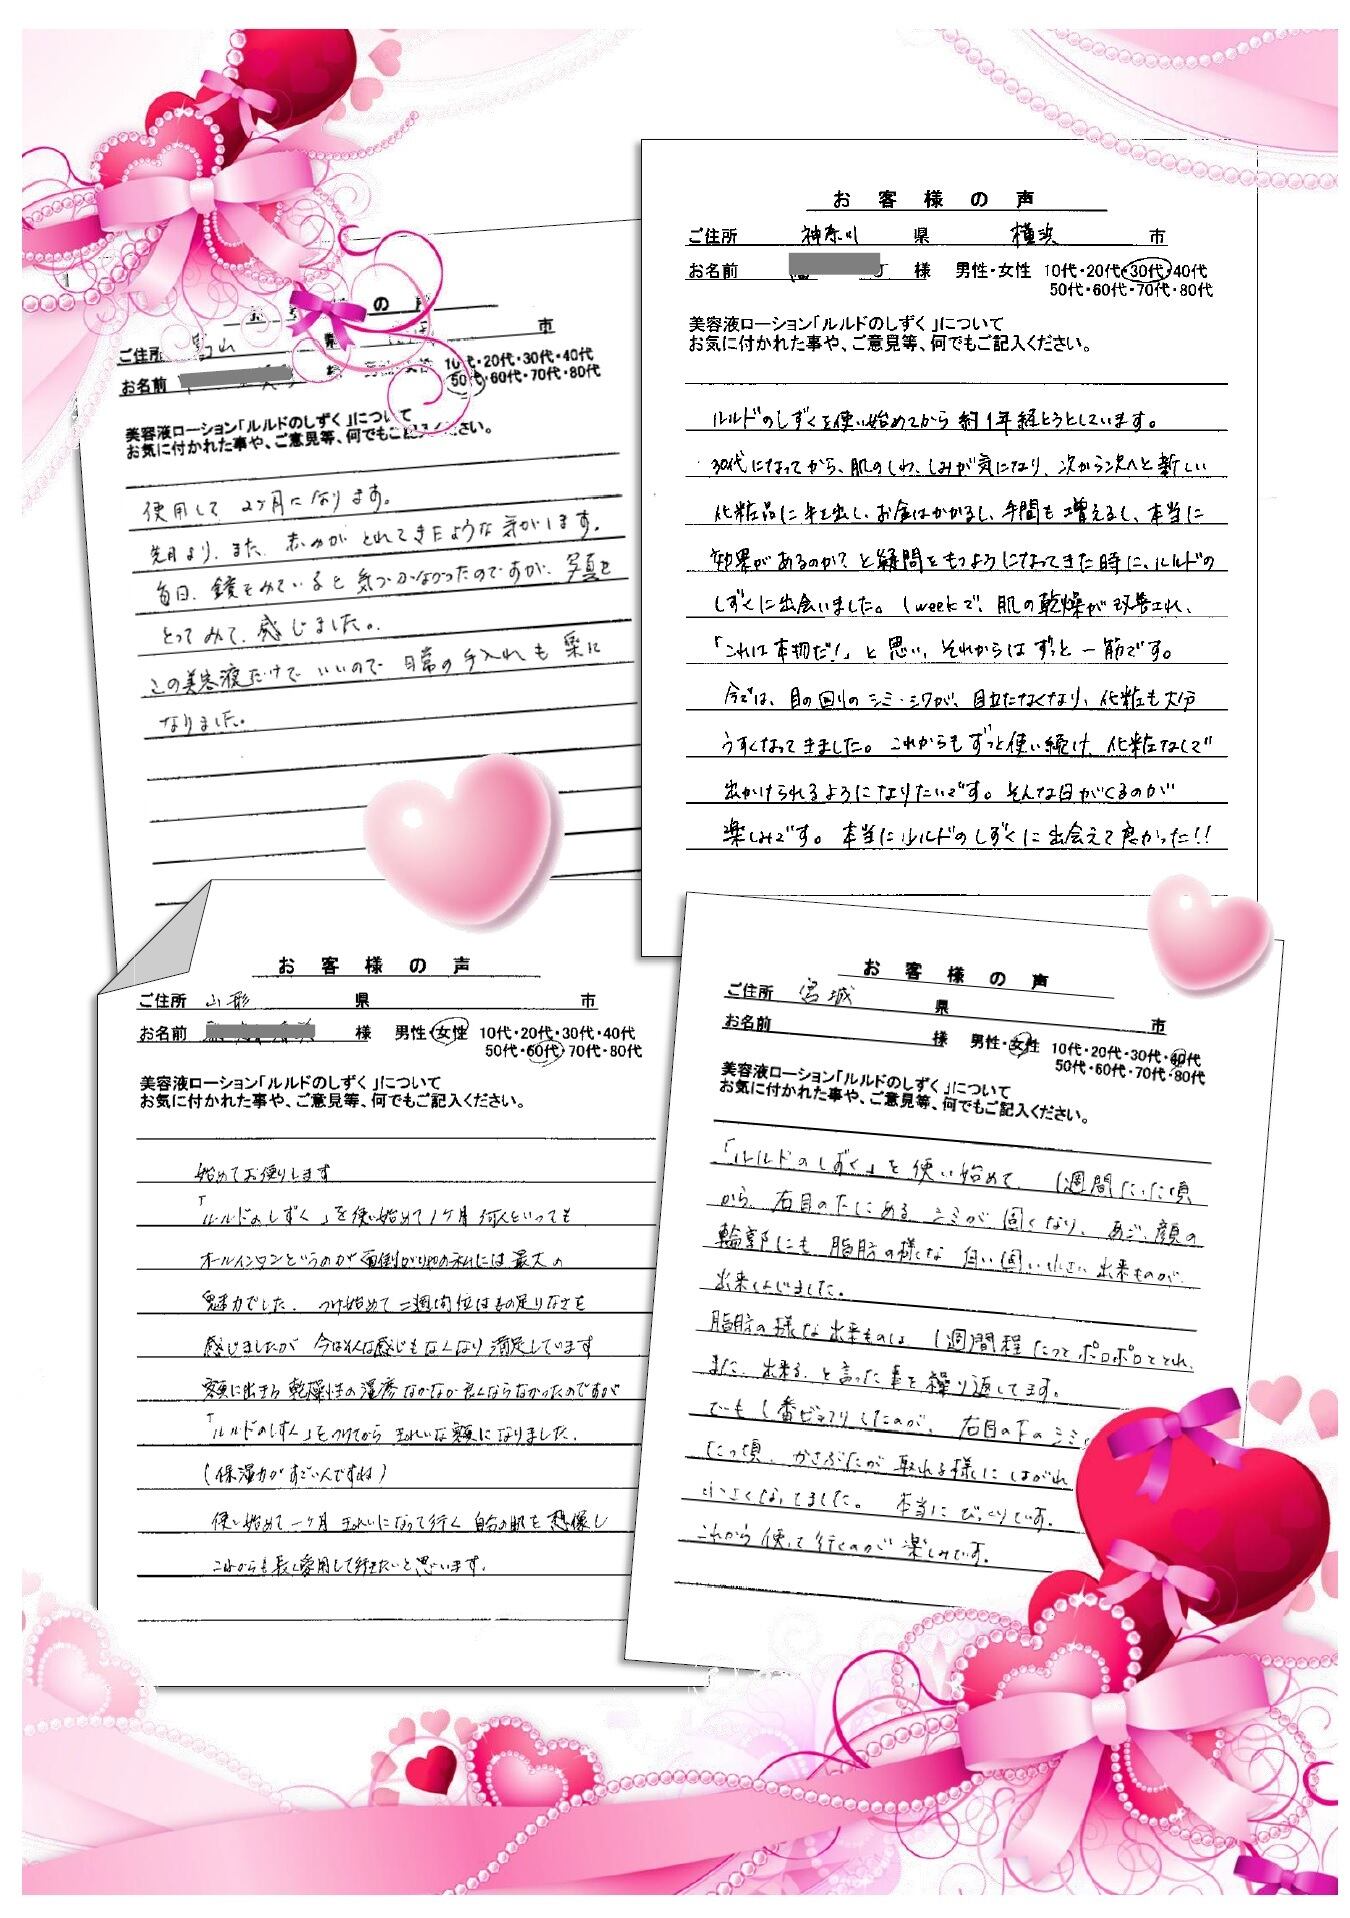 の 声
ご住所 県 市
お名前 様 男性・女性 10代・20代・30代・40代
50代・60代・70代・80代
美容液ローション「ルルドのしずく」について
お気に付かれた事や、ご意見等、何でもご記入ください。
使用して 2ヶ月になります。
先月より、また、赤みが とれてきたような気がします。
毎日、鏡をみていると気づかなかったのですが、写真を
とってみて、感じました。
この美容液だけでいいので 日常の手入れも楽に
なりました。
お 客 様 の 声
ご住所 神奈川 県 横浜 市
お名前 様 男性・女性 10代・20代・30代・40代
50代・60代・70代・80代
美容液ローション「ルルドのしずく」について
お気に付かれた事や、ご意見等、何でもご記入ください。
ルルドのしずくを使い始めてから 約1年経とうとしています。
30代になってから、肌のしわ、しみが気になり、次から次へと新しい
化粧品に手を出し、お金はかかるし、手間も増えるし、本当に
効果があるのか？と疑問をもつようになってきた時に、ルルドの
しずくに出会いました。1weekで、肌の乾燥が改善され、
「これは本物だ！」と思い、それからはずっと一筋です。
今では、目の回りのシミ・シワが、目立たなくなり、化粧も大分
うすくなってきました。これからもずっと使い続け、化粧なしで
出かけられるようになりたいです。そんな日がくるのが
楽しみです。本当にルルドのしずくに出会えて良かった!!
お 客 様 の 声
ご住所 山形 県 市
お名前 様 男性・女性 10代・20代・30代・40代
50代・60代・70代・80代
美容液ローション「ルルドのしずく」について
お気に付かれた事や、ご意見等、何でもご記入ください。
始めてお便りします
「ルルドのしずく」を使い始めて1ヶ月 何んといっても
オールインワンというのが面倒がりやの私には最大の
魅力でした。つけ始めて二週間位はもの足りなさを
感じましたが 今はそんな感じもなくなり満足しています
額に出きる乾燥性の湿疹なかなか良くならなかったのですが
「ルルドのしずく」をつけてから きれいな額になりました。
(保湿力がすごいんですね)
使い始めて一ヶ月 きれいになって行く 自分の肌を想像し
これからも長く愛用して行きたいと思います。
お 客 様 の 声
ご住所 宮城 県 市
お名前 様 男性・女性 10代・20代・30代・40代
50代・60代・70代・80代
美容液ローション「ルルドのしずく」について
お気に付かれた事や、ご意見等、何でもご記入ください。
「ルルドのしずく」を使い始めて、1週間たった頃
から、右目の下にある シミが固くなり、あご、顔の
輪郭にも 脂肪の様な 白い固い小さい出来ものが、
出来はじました。
脂肪の様な出来ものは 1週間程たつとポロポロととれ、
また、出来る、と言った事を繰り返してます。
でも1番ビックリしたのが、右目の下のシミ
たった頃、かさぶたが 取れる様に はがれ
小さくなってました。 本当に びっくりです。
これから 使って行くのが 楽しみです。